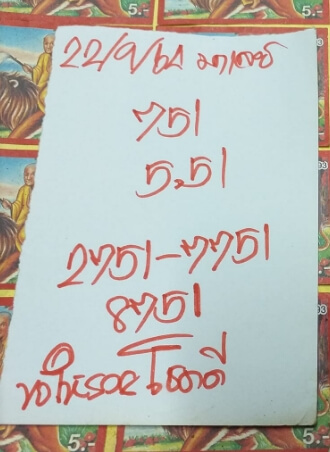 22/9/64 มาเลย์
751
5.51
2751-7751
8751
ขอให้รวย โชคดี
5.-
5.-
5.-
5.-